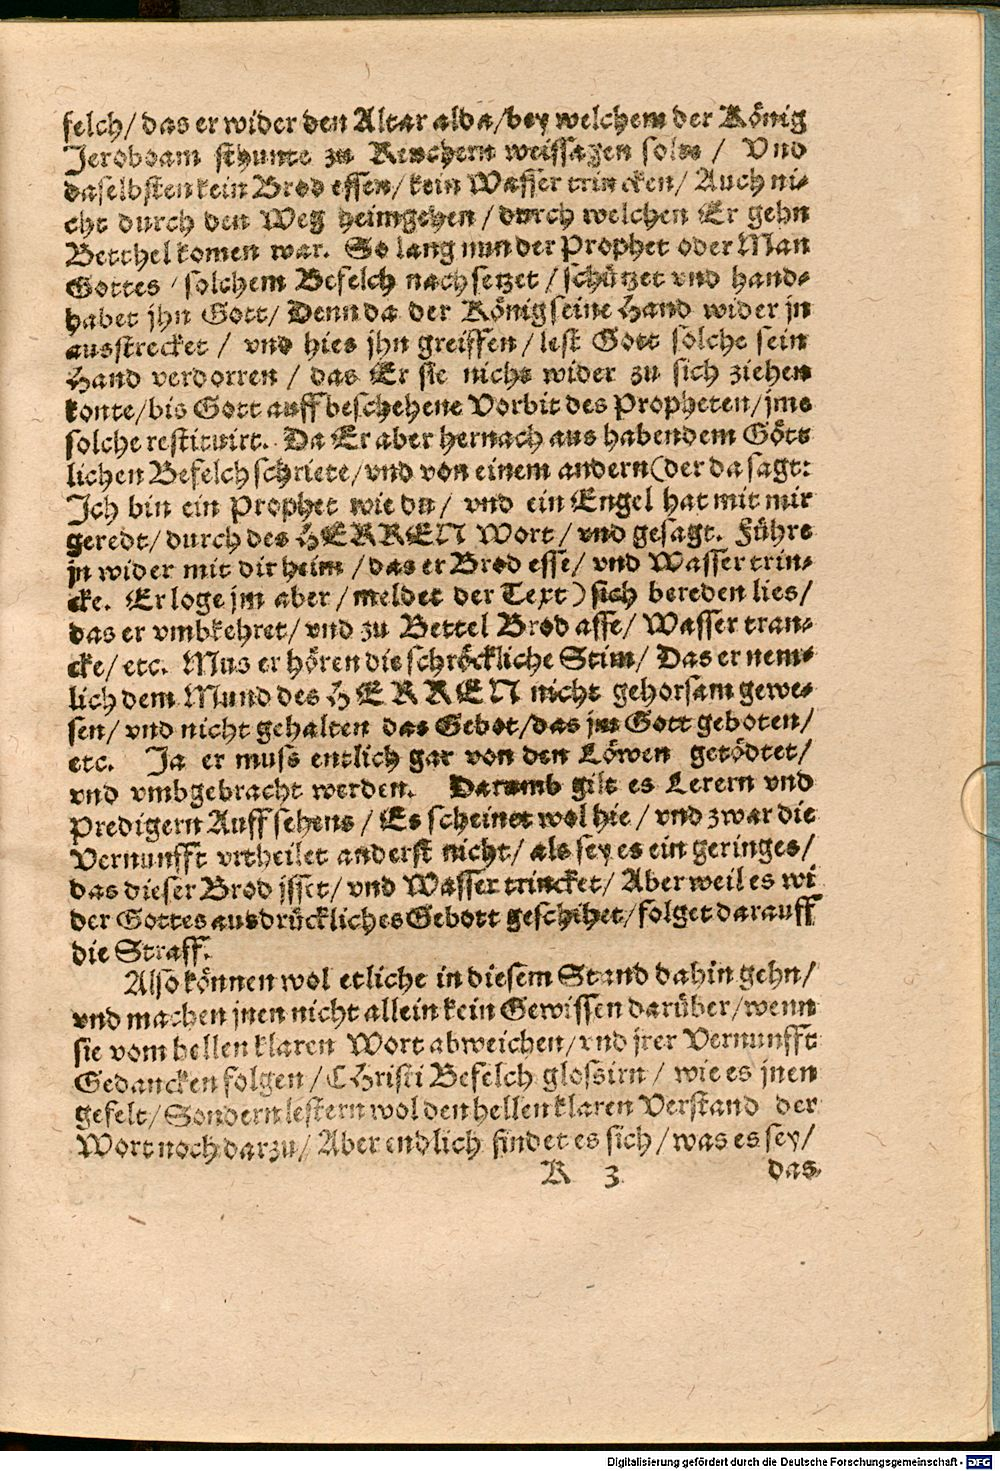 felch/ das er wider den Altar alda/bey welchem der König
Jeroboam sthunte zu Reuchern weissagen solte / Vnd
daselbsten kein Brod essen/ kein Wasser trincken/ Auch ni-
cht durch den Weg heimgehen / durch welchen Er gehn
Betthel komen war. So lang nun der Prophet oder Man
Gottes / solchem Befelch nachsetzet / schützet vnd hand-
habet jhn Gott/ Denn da der König seine Hand wider jn
ausstrecket / vnd hies jhn greiffen / lest Gott solche sein
Hand verdorren / das Er sie nicht wider zu sich ziehen
konte/bis Gott auff beschehene Vorbit des Propheten/jme
solche restituirt. Da Er aber hernach aus habendem Gött
lichen Befelch schriete/vnd von einem andern (der da sagt:
Ich bin ein Prophet wie du/ vnd ein Engel hat mit mir
geredt/ durch des HERREN Wort/ vnd gesagt. Führe
jn wider mit dir heim /das er Brod esse/ vnd Wasser trin-
cke. Er loge jm aber / meldet der Text) sich bereden lies/
das er vmbkehret/ vnd zu Bettel Brod asse/ Wasser tran-
cke/ etc. Mus er hören die schröckliche Stim/ Das er nem-
lich dem Mund des HERREN nicht gehorsam gewe-
sen/ vnd nicht gehalten das Gebot/das jm Gott geboten/
etc. Ja er muss entlich gar von den Löwen getödtet/
vnd vmbgebracht werden. Darumb gilt es Lerern vnd
Predigern Auffsehens / Es scheinet wol hie / vnd zwar die
Vernunfft vrtheilet anderst nicht/ als sey es ein geringes/
das dieser Brod jsset/ vnd Wasser trincket/ Aber weil es wi
der Gottes ausdrückliches Gebott geschihet/folget darauff
die Straff.
Also können wol etliche in diesem Stand dahin gehn/
vnd machen jnen nicht allein kein Gewissen darüber/wenn
sie vom hellen klaren Wort abweichen/vnd jrer Vernunfft
Gedancken folgen / CHristi Befelch glossirn / wie es jnen
gefelt/ Sondern lestern wol den hellen klaren Verstand der
Wort noch darzu/ Aber endlich findet es sich / was es sey/
K 3 das
Digitalisierung gefördert durch die Deutsche Forschungsgemeinschaft - DFG